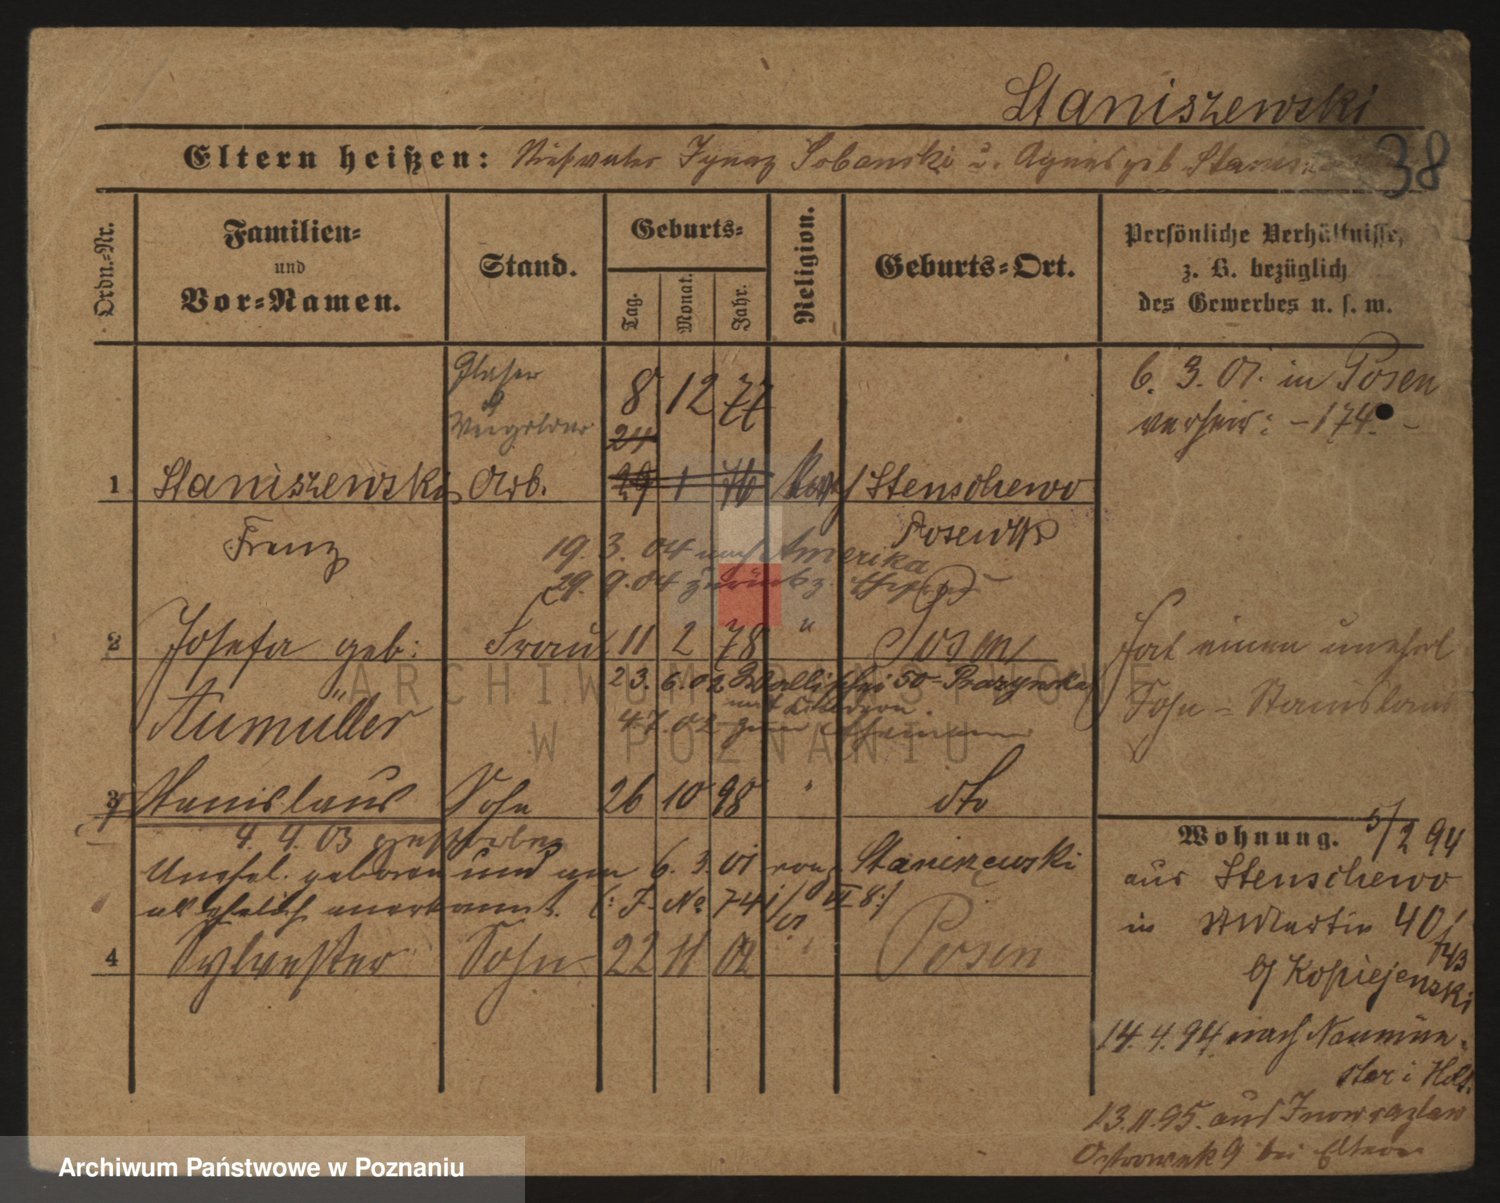 Staniszewski
38
Eltern heißen: Stiefvater Ignaz Sobanski u. Agnes geb
Ordn.-Nr.
Familien-
und
Vor-Namen.
Stand.
Geburts-
Tag.
Monat.
Jahr.
Religion.
Geburts-Ort.
Persönliche Verhältnisse,
z. B. bezüglich
des Gewerbes u. s. w.
Glaser
8 12 77
6. 3. 01. in Posen
verheir: -174.-
24
1 Staniszewski Arb. 29 1 76 Stenschewo
Franz
Posen W/K
19. 3. 04 nach Amerika
29. 9. 04 zurück z.
2 Josefa geb: Frau 11 2 78 " Posen
Aumüller
Hat einen unehel
Sohn - Stanislaus
23. 6. 02 Wallischei 50
4.7.02 zum Ehemann
3 Stanislaus Sohn 26 10 98 " dto
4. 4. 03 gestorben
Unehel. geboren und am 6. 3. 01 von Staniszewski
als ehelich anerkannt. (: J. No 741/01 VI 8:)
4 Sylvester Sohn 22 11 02 " Posen
Wohnung. 5/2 94
aus Stenschewo
in St Martin 40/43
b/ Kopiejenski
14. 4. 94 nach Neumün-
ster i Hols.
13. 11. 95. aus Inowrazlaw
9 bei Eltern
ARCHIWUM PAŃSTWOWE
W POZNANIU
Archiwum Państwowe w Poznaniu